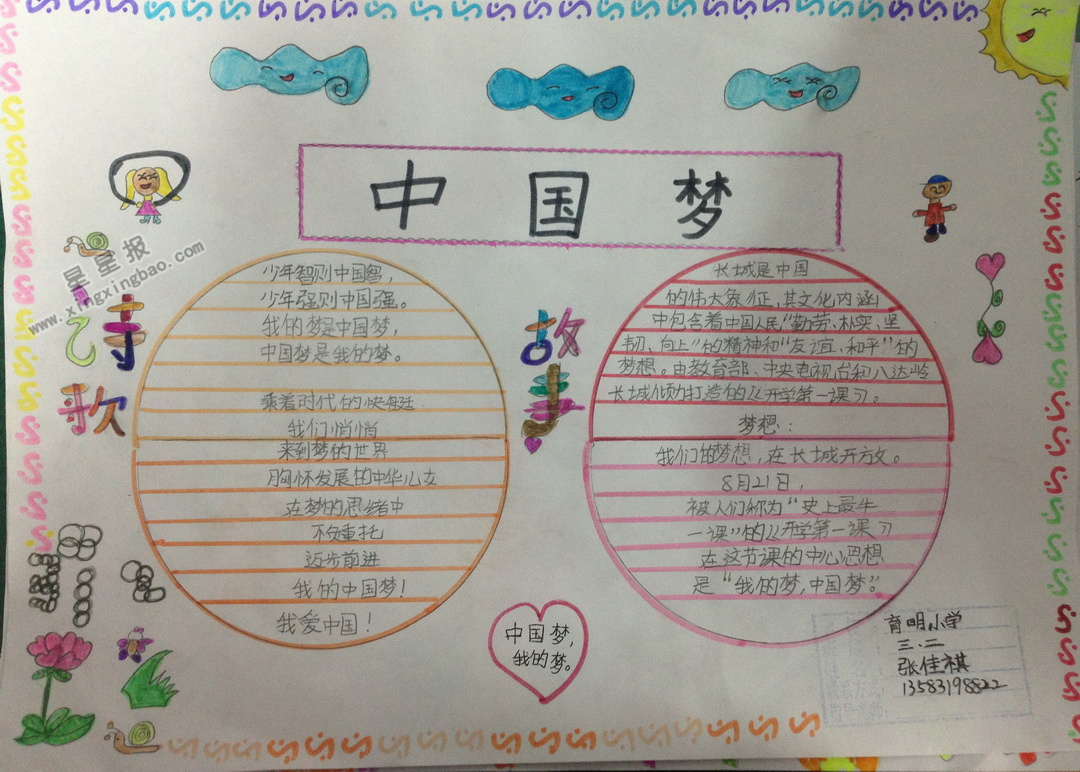 中国梦
诗歌
少年智则中国智,
少年强则中国强。
我的梦是中国梦,
中国梦是我的梦。
乘着时代的快艇
我们悄悄
来到梦的世界
胸怀发展的中华儿女
在梦的思绪中
不负重托
迈步前进
我的中国梦!
我爱中国!
故事
长城是中国
的伟大象征,其文化内涵
中包含着中国人民“勤劳、朴实、坚
韧、向上”的精神和“友谊、和平”的
梦想。由教育部、中央电视台和八达岭
长城倾力打造的《开学第一课》。
梦想:
我们的梦想,在长城开放。
8月21日,
被人们称为“史上最牛
一课”的《开学第一课》
在这节课的中心思想
是“我的梦,中国梦”。
中国梦,
我的梦。
育明小学
三.二
张佳祺
13583198822
星星报
www.xingxingbao.com